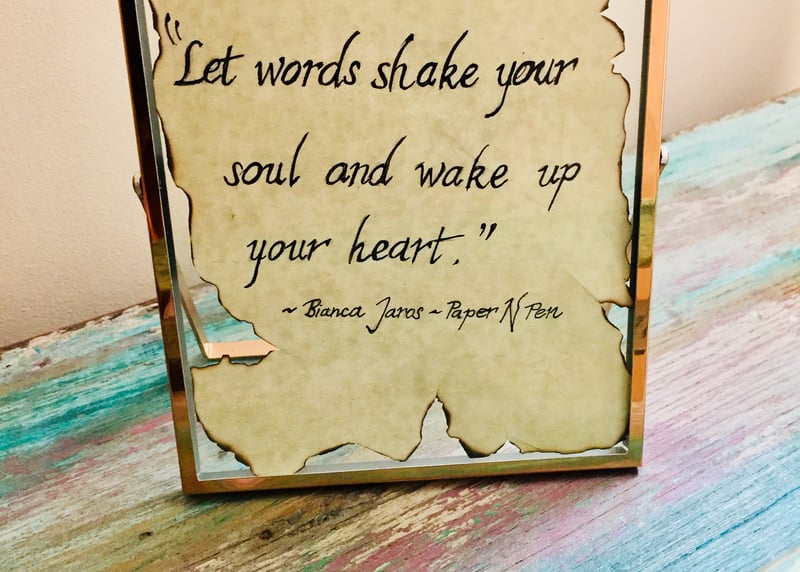 "Let words shake your
soul and wake up
your heart."
~ Bianca Jaros ~ Paper N Pen